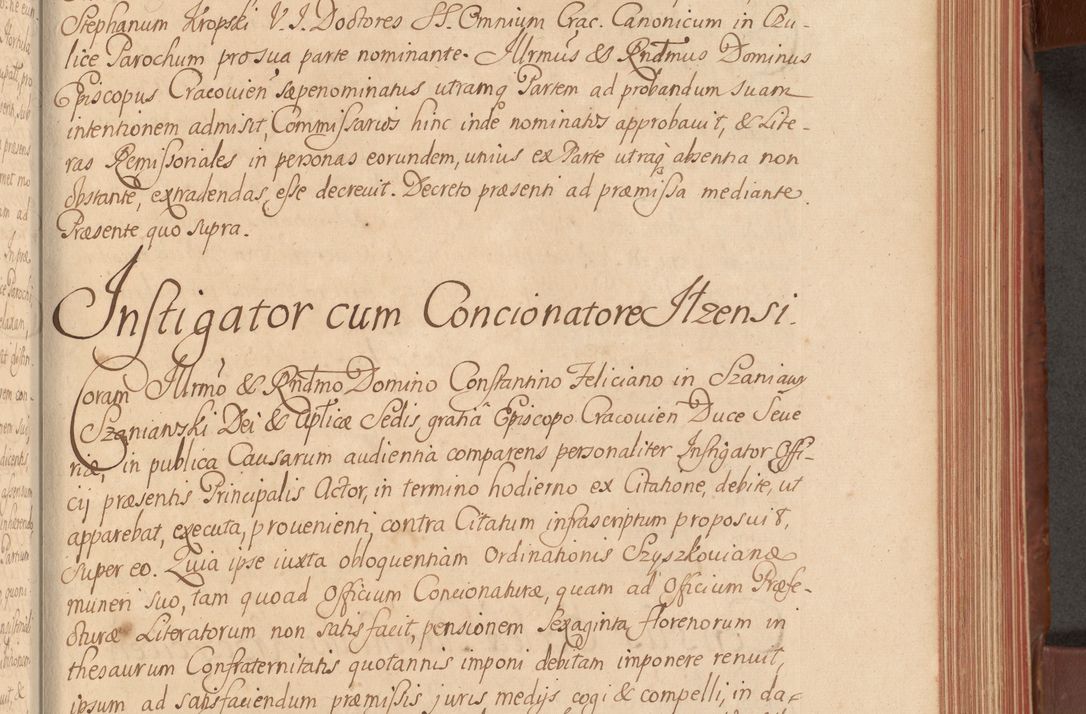 Stephanum Kropski V.I. Doctores SS. Omnium Crac. Canonicum in Czu-
lice Parochum pro sua parte nominante. Illrmus & Rndmus Dominus
Episcopus Cracovien sæpenominatus utramq Partem ad probandum suam
intentionem admisit, Commissarios hinc inde nominatos approbavit, & Lite-
ras Remissoriales in personas eorundem, unius ex Parte utraq absentia non
obstante, extradendas esse decrevit. Decreto præsenti ad præmissa mediante.
Præsente quo supra.
Instigator cum Concionatore Itzensi.
Coram Illrmo & Rndmo Domino Constantino Feliciano in Szaniawy
Szaniawski Dei & Aplicæ Sedis gratiâ Episcopo Cracovien Duce Seve
riæ, in publica Causarum audientia comparens personaliter Instigator Offi-
cij præsentis Principalis Actor, in termino hodierno ex Citatione, debite, ut
apparebat, executa, provenienti, contra Citatum infrascriptum proposuit,
super eo. Quia ipse iuxta obloquentiam Ordinationis Szyszkovianæ
muneri suo, tam quoad Officium Concionaturæ, quam ad Officium Præfe-
cturæ Literatorum non satisfacit, pensionem Sexaginta florenorum in
thesaurum Confraternitatis quotannis imponi debitam imponere renuit,
ipsum ad satisfaciendum præmissis juris medijs cogi & compelli, in da-